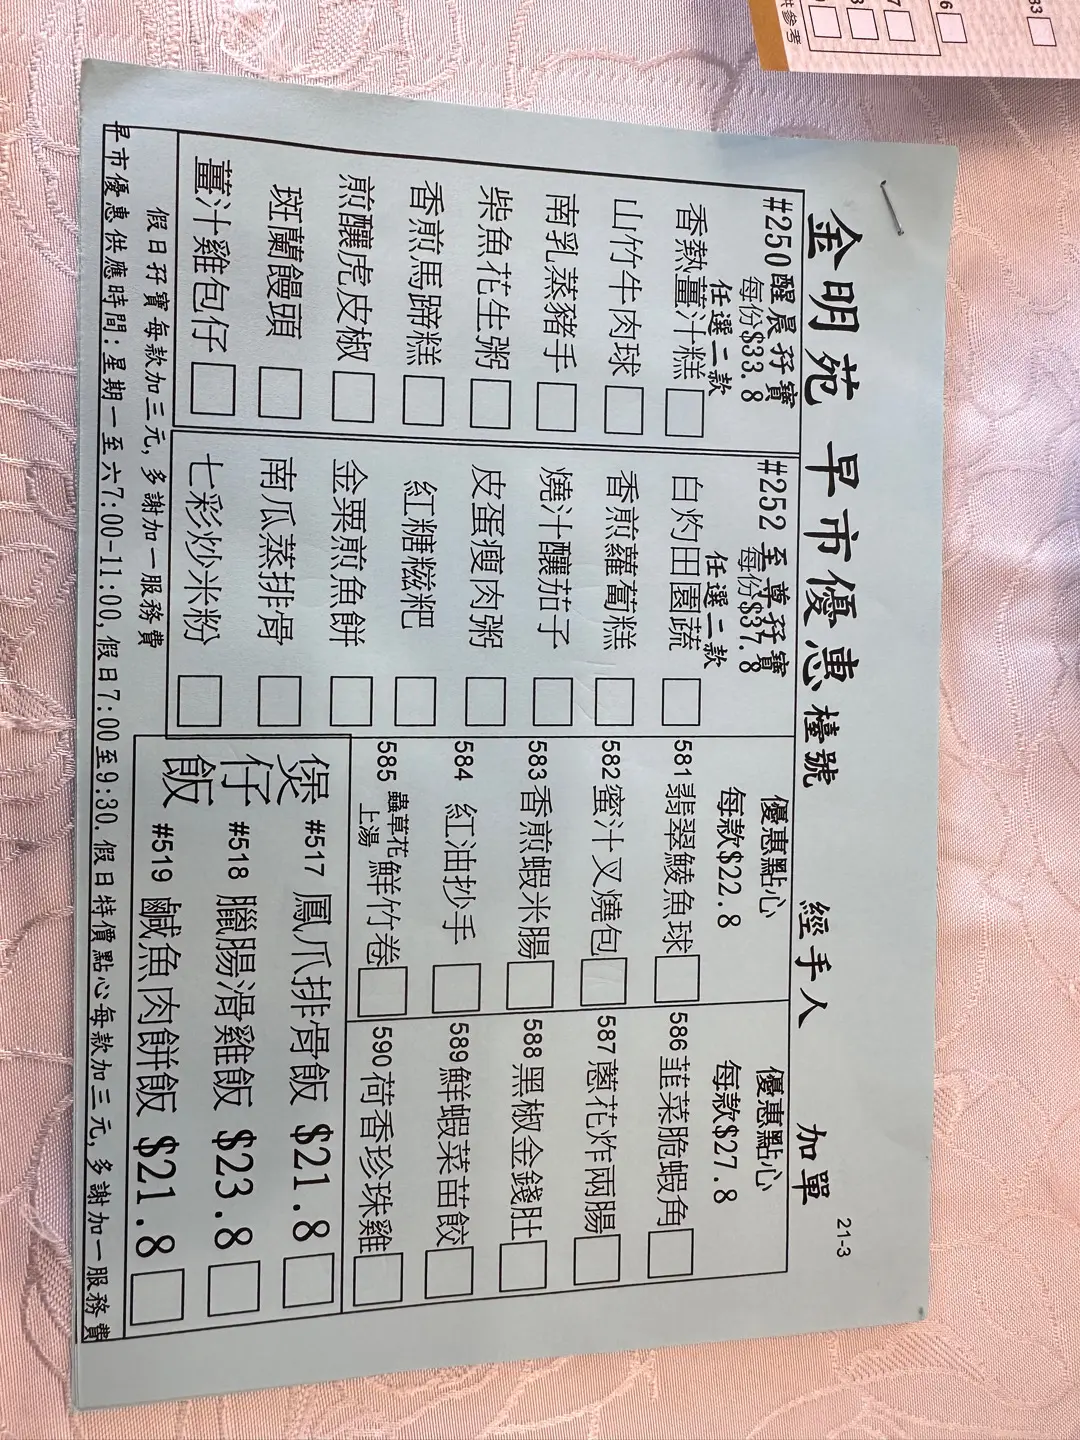 金明苑 早市優惠 檯號 經手人 加單 21-3
#250醒晨孖寶
每份$33.8
任選二款
香熱薑汁糕
山竹牛肉球
南乳蒸豬手
柴魚花生粥
香煎馬蹄糕
煎釀虎皮椒
斑蘭饅頭
薑汁雞包仔
#252 至尊孖寶
每份$37.8
任選二款
白灼田園蔬
香煎蘿蔔糕
燒汁釀茄子
皮蛋瘦肉粥
紅糖糍粑
金粟煎魚餅
南瓜蒸排骨
七彩炒米粉
優惠點心
每款$22.8
581翡翠鯪魚球
582蜜汁叉燒包
583香煎蝦米腸
584 紅油抄手
585 蟲草花上湯鮮竹卷
優惠點心
每款$27.8
586韭菜脆蝦角
587蔥花炸兩腸
588黑椒金錢肚
589鮮蝦菜苗餃
590荷香珍珠雞
煲仔飯
#517 鳳爪排骨飯 $21.8
#518 臘腸滑雞飯 $23.8
#519 鹹魚肉餅飯 $21.8
假日孖寶每款加三元,多謝加一服務費
早市優惠供應時間:星期一至六7:00-11:00,假日7:00至9:30.假日特價點心每款加三元,多謝加一服務費
33
6
7
8
供參考